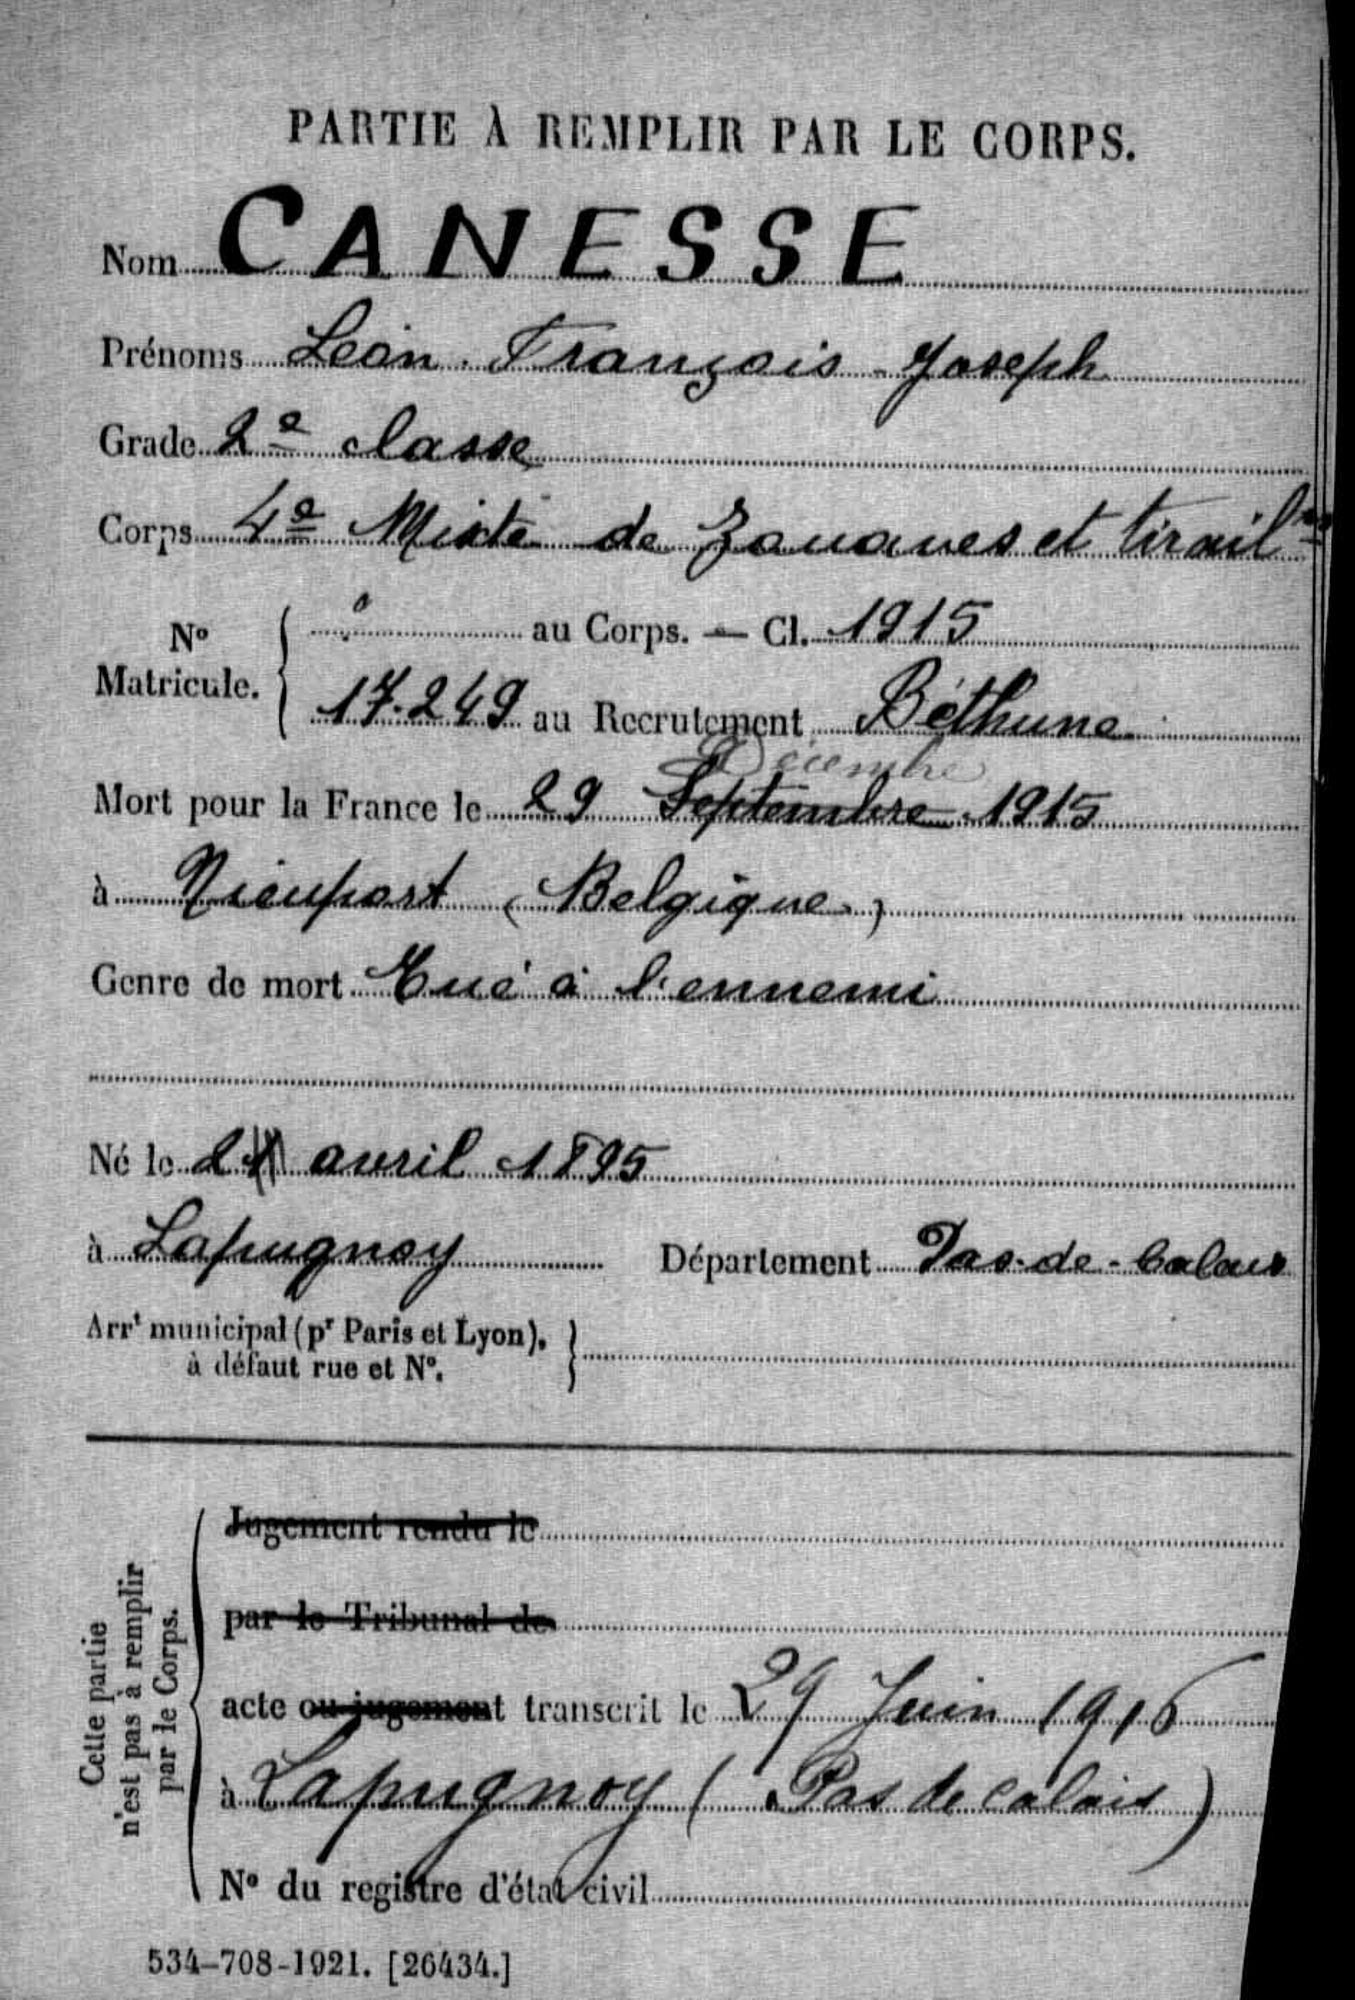 PARTIE À REMPLIR PAR LE CORPS.
Nom CANESSE
Prénoms Léon François Joseph
Grade 2e classe
Corps 4e Mixte de Zouaves et tirailrs
No Matricule. au Corps. — Cl. 1915
17.249 au Recrutement Béthune
Décembre
Mort pour la France le 29 Septembre 1915
à Nieuport (Belgique)
Genre de mort Tué à l'ennemi
Né le avril 1895
à Lapugnoy Département Pas-de-Calais
Arrt municipal (pr Paris et Lyon),
à défaut rue et No.
Cette partie
n'est pas à remplir
par le Corps.
Jugement rendu le
par le Tribunal de
acte ou jugement transcrit le 29 Juin 1916
à Lapugnoy (Pas de Calais)
No du registre d'état civil
534-708-1921. [26434.]